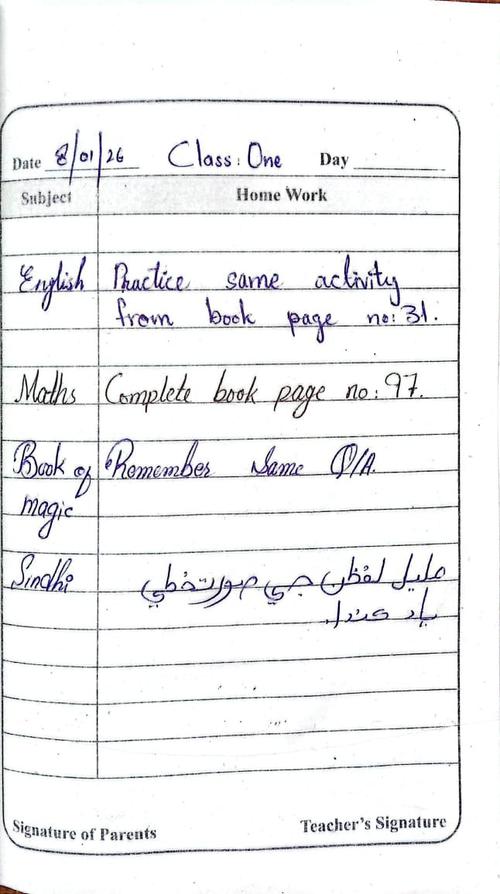 Date 8/01/26 Class: One Day
Subject Home Work
English Practice same activity
from book page no: 31.
Maths Complete book page no: 97.
Book of Remember Same Q/A
magic
Sindhi مليل لفظن جي صورتخطي
ياد ڪندا.
Signature of Parents Teacher's Signature